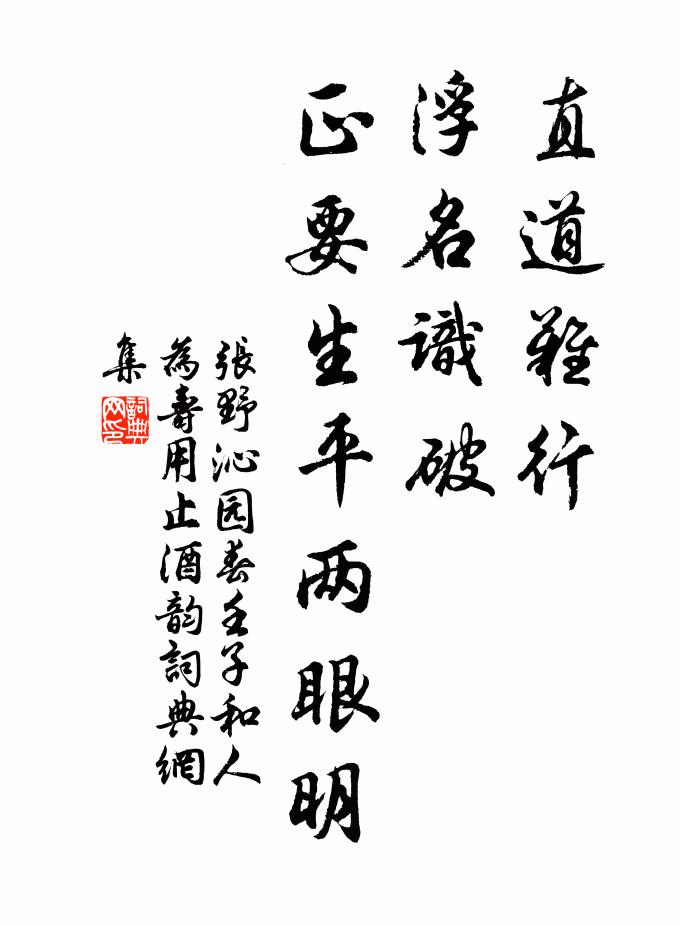 直道難行
浮名識破
正要生平两眼明
張野沁园春壬子和人
為壽用止酒韵詞典網
集
詞典
网印